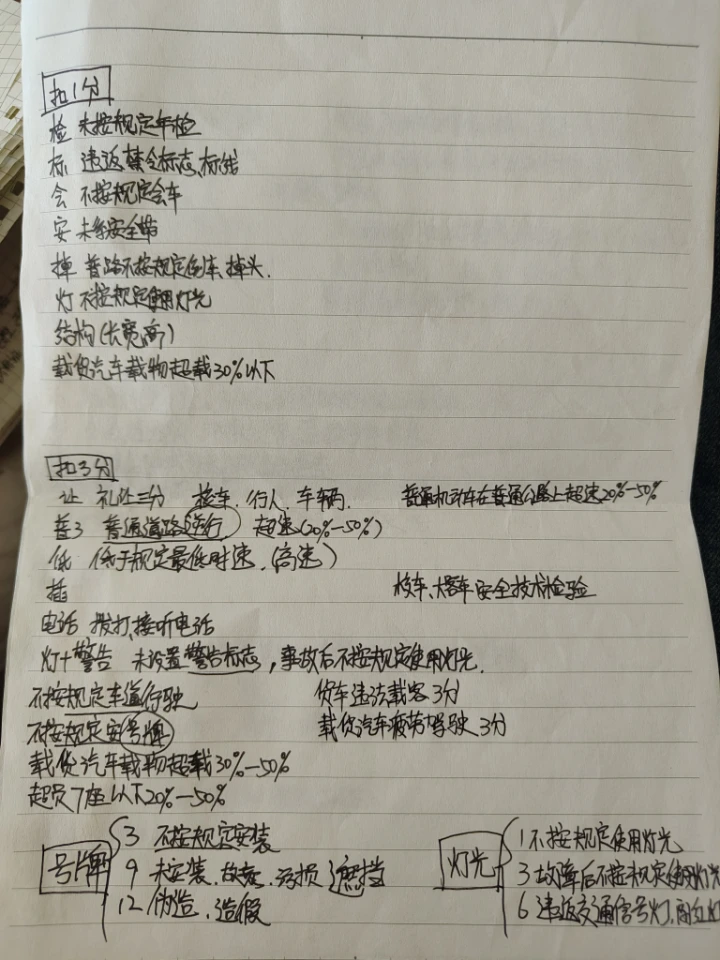 扣1分
检 未按规定年检
标 违返禁令标志、标线
会 不按规定会车
安 未系安全带
掉 普路不按规定倒车、掉头.
灯 不按规定使用灯光
结构(长宽高)
载货汽车载物超载30%以下
扣3分
让 礼让三分 校车、行人、车辆. 普通机动车在普通公路上超速20%—50%
普3 普通道路逆行 超速(20%—50%)
低 低于规定最低时速.(高速)
插 校车、大客车安全技术检验
电话 拨打、接听电话
灯+警告 未设置警告标志,事故后不按规定使用灯光.
不按规定车道行驶 货车违法载客3分
不按规定安号牌 载货汽车疲劳驾驶3分
载货汽车载物超载30%—50%
超员7座以下20%—50%
号牌
3 不按规定安装
9 未安装、故意、污损 遮挡
12 伪造、造假
灯光
1 不按规定使用灯光
3 故障后不按规定使用灯光
6 违返交通信号灯,闯红灯